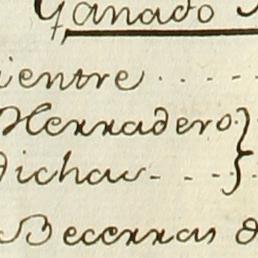 Ganado
ientre . . . . .
Herradero }
dichas . . . .
Becerras d